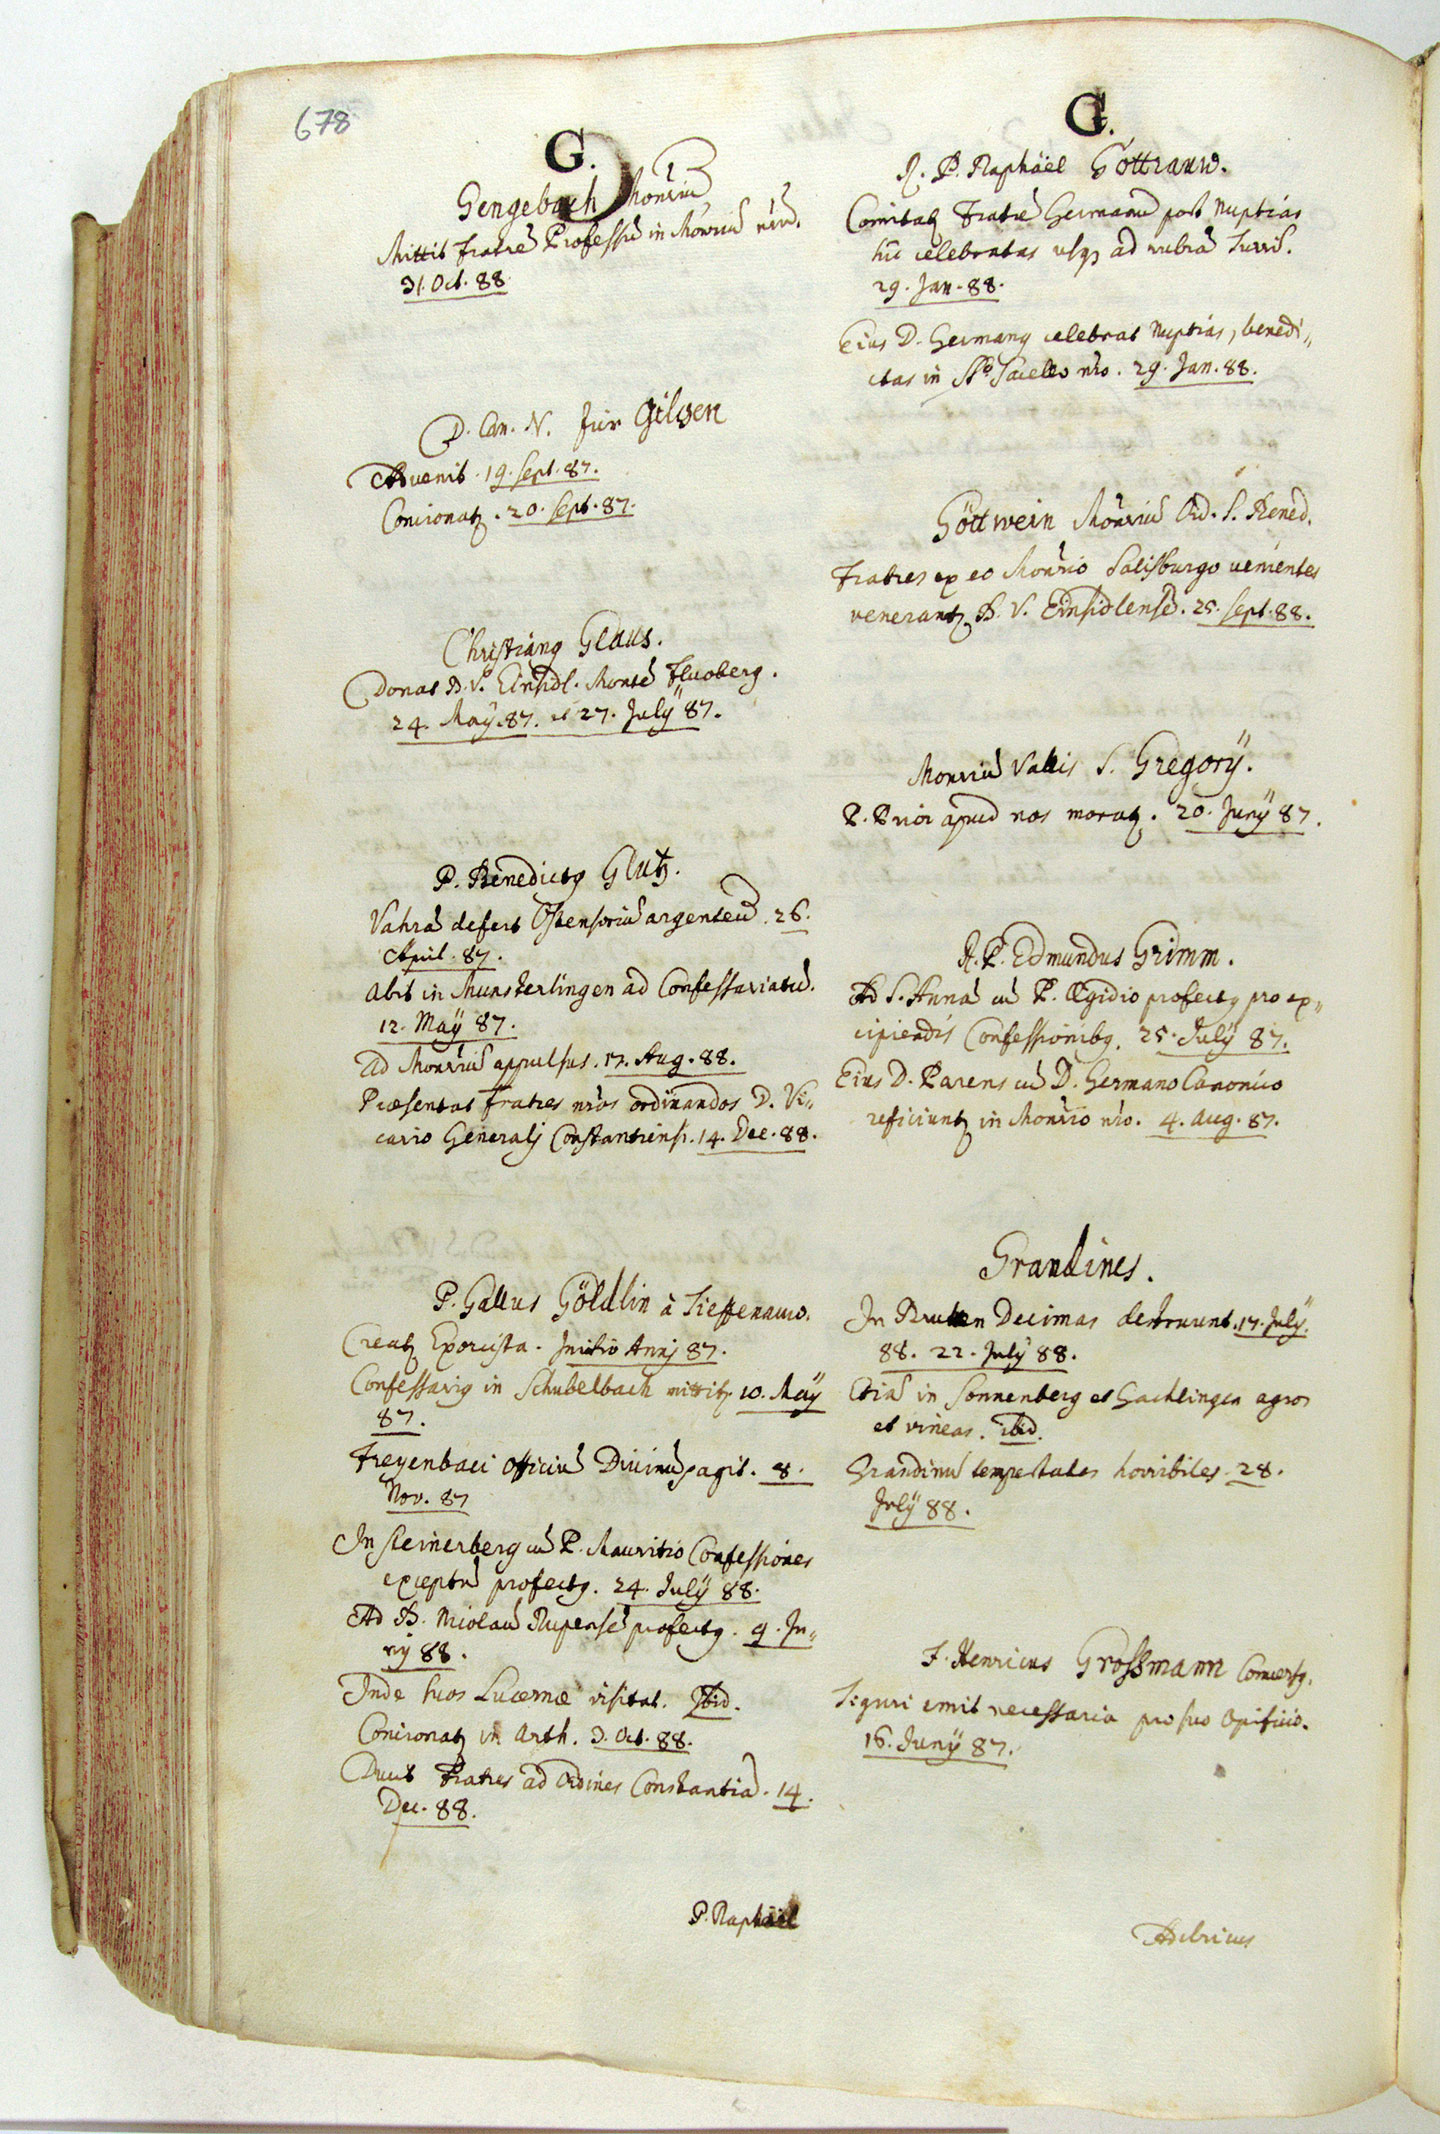 678
G.
Gengebach Monriũ
Mittit fratrẽ Professũ in Monriũ nrũ.
31. Oct. 88
D. Can. N. für Gilgen
Advenit. 19. Sept. 87.
Concionatꝫ. 20. Sept. 87.
Christiãnꝯ Glaus.
Donat B. V. Einsidl. Montẽ Fluoberg.
24. Maÿ. 87. et 27. Julÿ 87.
P. Benedictꝯ Glutz.
Vahrã defert Ostensoriũ argenteũ. 26.
April. 87.
Abit in Munsterlingen ad Confessariatũ.
12. Maÿ 87.
Ad Monriũ appulsus. 17. Aug. 88.
Præsentat fratres nros ordinandos D. Vi-
cario Generali Constantiensi. 14. Dec. 88.
P. Gallus Göldlin à Tieffenauw.
Creatꝫ Exorcista. Initio Anni 87.
Confessariꝯ in Schubelbach mittitꝫ 10. Maÿ
87.
Freyenbaci Officiũ Divinũ pagit. 8.
Nov. 87
In Steinerberg cũ P. Mauritio Confessiones
exceptũ profectꝯ. 24. Julÿ 88.
Ad B. Nicolaũ Rupensẽ profectꝯ. 9. Ju-
nÿ 88.
Inde hios Lucernæ visitat. Ibid.
Concionatꝫ in Arth. 3. Oct. 88.
Ducit Fratres ad Ordines Constantiã. 14.
Dec. 88.
P. Raphäel
G.
R. P. Raphäel Gottrauw.
Comitatꝫ Fratrẽ Germanũ post Nuptias
hic celebratas usqꝫ ad rubrã Turrĩ.
29. Jan. 88.
Eius D. Germanꝯ celebrat Nuptias, benedi-
ctas in Sto Sacello nro. 29. Jan. 88.
Göttwein Monriũ Ord. S. Bened.
Fratres ex eo Monrio Salisburgo venientes
venerantꝫ B. V. Einsidlensẽ. 25. Sept. 88.
Monriũ Vallis S. Gregorÿ.
P. Prior apud nos moratꝫ. 20. Junÿ 87.
R. P. Edmundus Grimm.
Ad S. Annã cũ P. Ægidio profectꝯ pro ex-
cipiendis Confessionibꝯ. 25. Julÿ 87.
Eius D. Parens cũ D. Germano Canonico
reficiuntꝫ in Monrio nro. 4. Aug. 87.
Grandines.
In Brutten Decimas destruunt. 17. Julÿ.
88. 22. Julÿ 88.
Etiã in Sonnenberg et Gachlingen agros
et vineas. ibid.
Grandinũ tempestates horribiles. 28.
Julÿ 88.
F. Henricus Grossmann Conversꝯ.
Tiguri emit necessaria pro suo Opificio.
16. Junÿ 87.